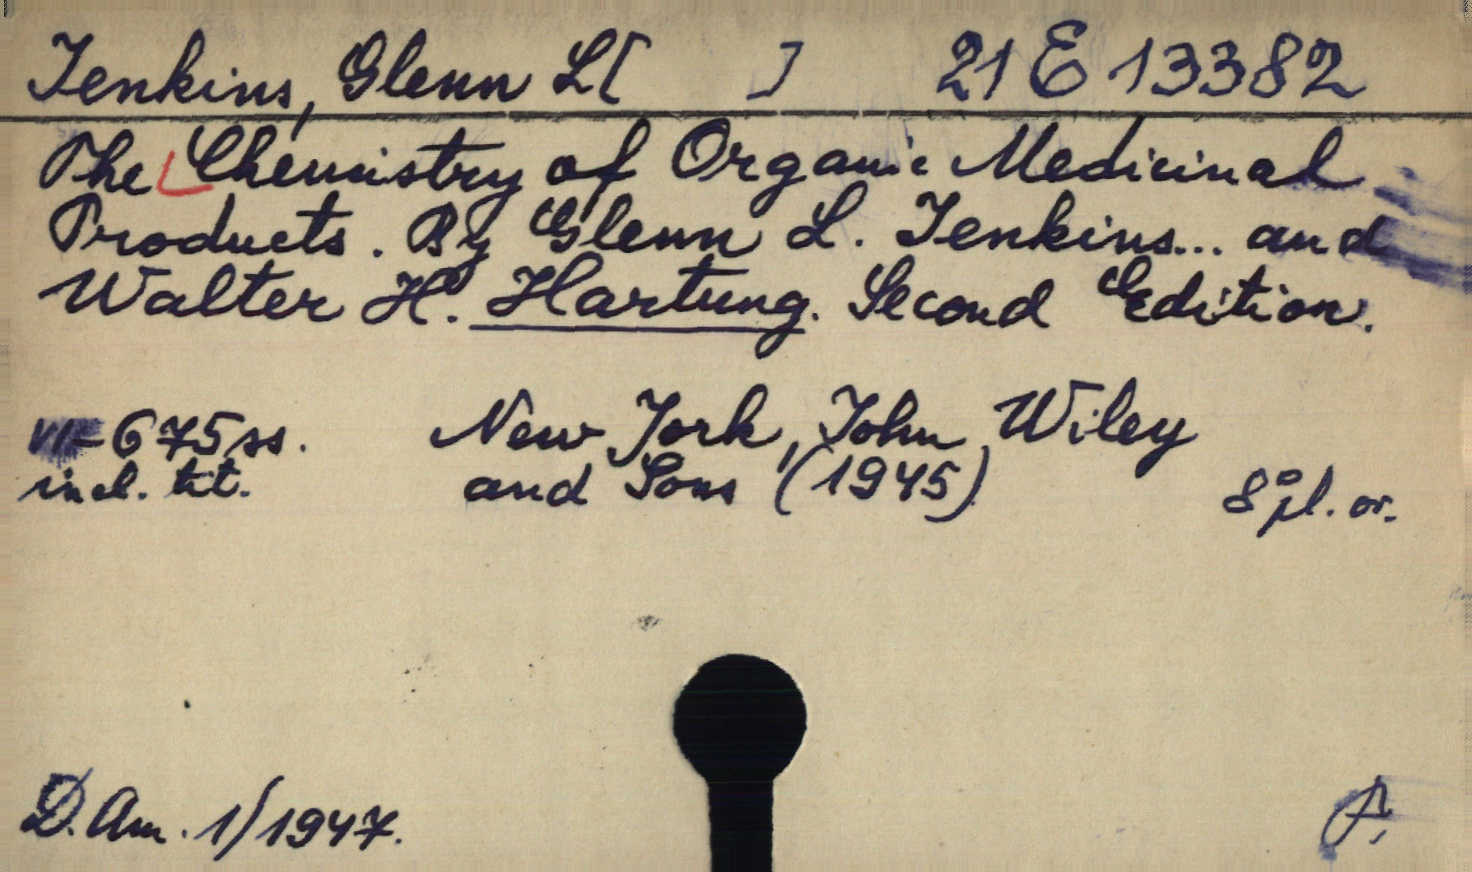 Jenkins, Glenn L[ ] 21 E 13382
The Chemistry of Organic Medicinal
Products. By Glenn L. Jenkins... and
Walter H. Hartung. Second Edition.
VI-675 ss. New York, John Wiley
incl. tit. and Sons (1945) 8° pl. or.
D. Am. 1/1947.